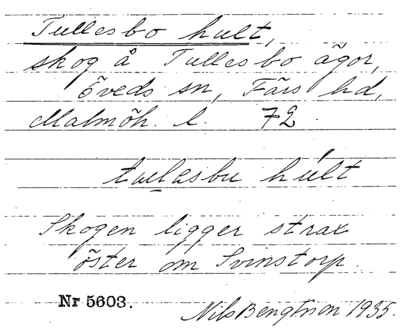 Tullesbo hult,
skog å Tullesbo ägor,
Öveds sn, Färs hd,
Malmöh. l. 72
hult
Skogen ligger strax
öster om Svinstorp.
Nr 5603.
Nils Bengtson 1935.